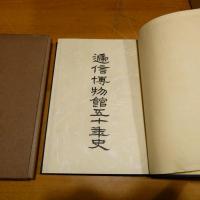 遞信博物館五十年史